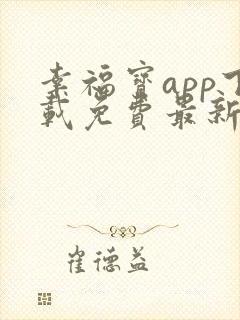 幸福宝app下
载免费最新
崔德益